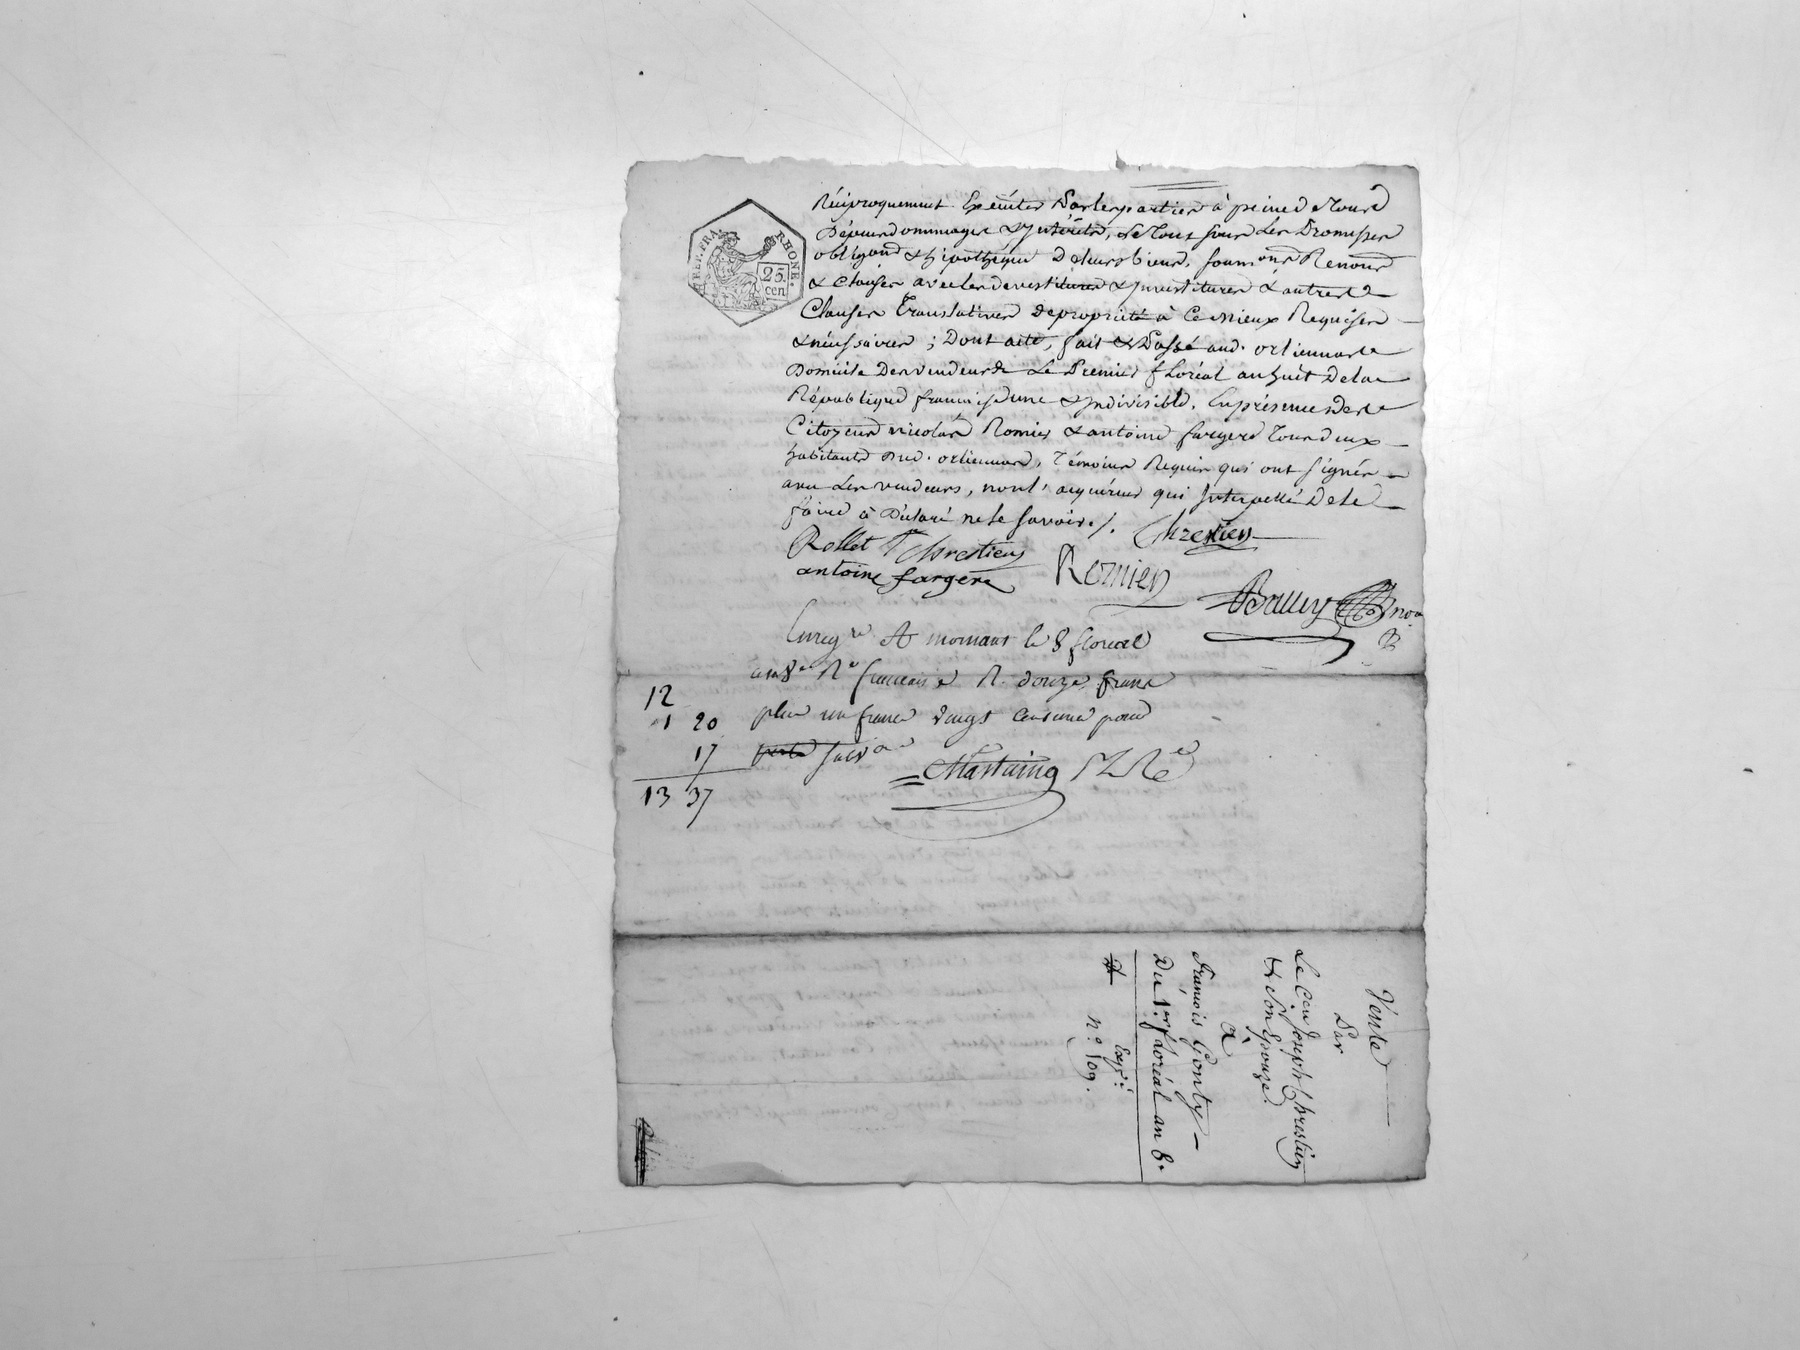 REP. FRA.
RHONE.
25
cen
Réciproquement Exécuter Par les parties à peine de tous
Dépens dommages & Intérêts, le tous sous Les Promisses
obligaõns & hipothéque De leurs biens, soumõns Renonõns
& Clauses avec les devestitures & Investitures & autres
Clauses Translatives de propriété à Ce mieux Requises
& nécessaires ; Dont acte, fait & Passé aud. orlienas
Domicile Des vendeurs Le Premier floréal an huit De la
République française une & Indivisible, En présence Des
Citoyens nicolas Romier & antoine fargere tous deux
habitants Dud. orlienas, Témoins Requis qui ont signés
avec Les vendeurs, non l'acquéreur qui Interpellé De le
faire à Déclaré ne le savoir ./.
Chrestien
Rollet fe Chrestien
antoine fargere
Romier
Bailly
Enreg.ré A mornant le 8 floreal
an 8e Re francaise R. douze francs
plus un franc vingt centimes pour
subv.on
Mastaing
12
1 20
17
13 37
Vente
Par
Le Cen Joseph Chrestien
& Son Epouse.
à
François Gonty
Du 1er floréal an 8.
Exp.é
N.o 109.